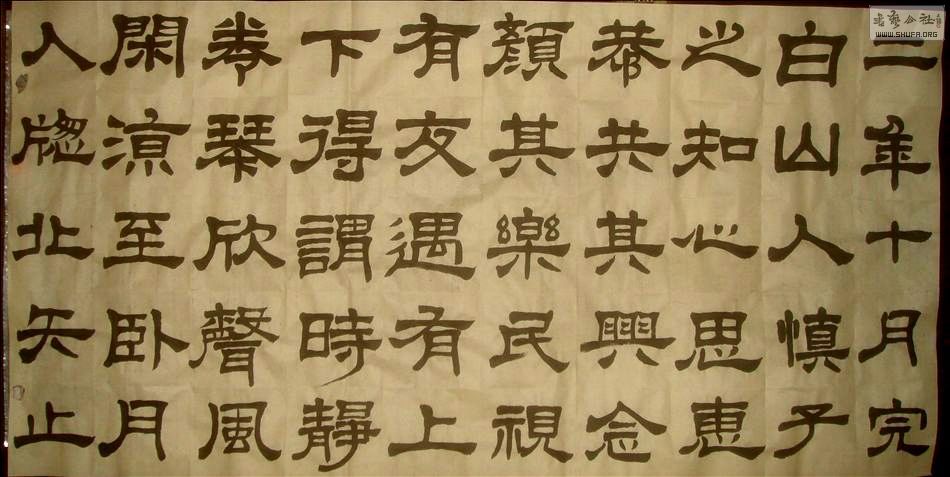 年十月完
白山人慎子
之知心思惠
恭共其興念
顏其樂民視
有友遇有上
下得謂時靜
卷琴欣聲風
閑涼至卧月
人牕北矢止
书艺公社
WWW.SHUFA.ORG